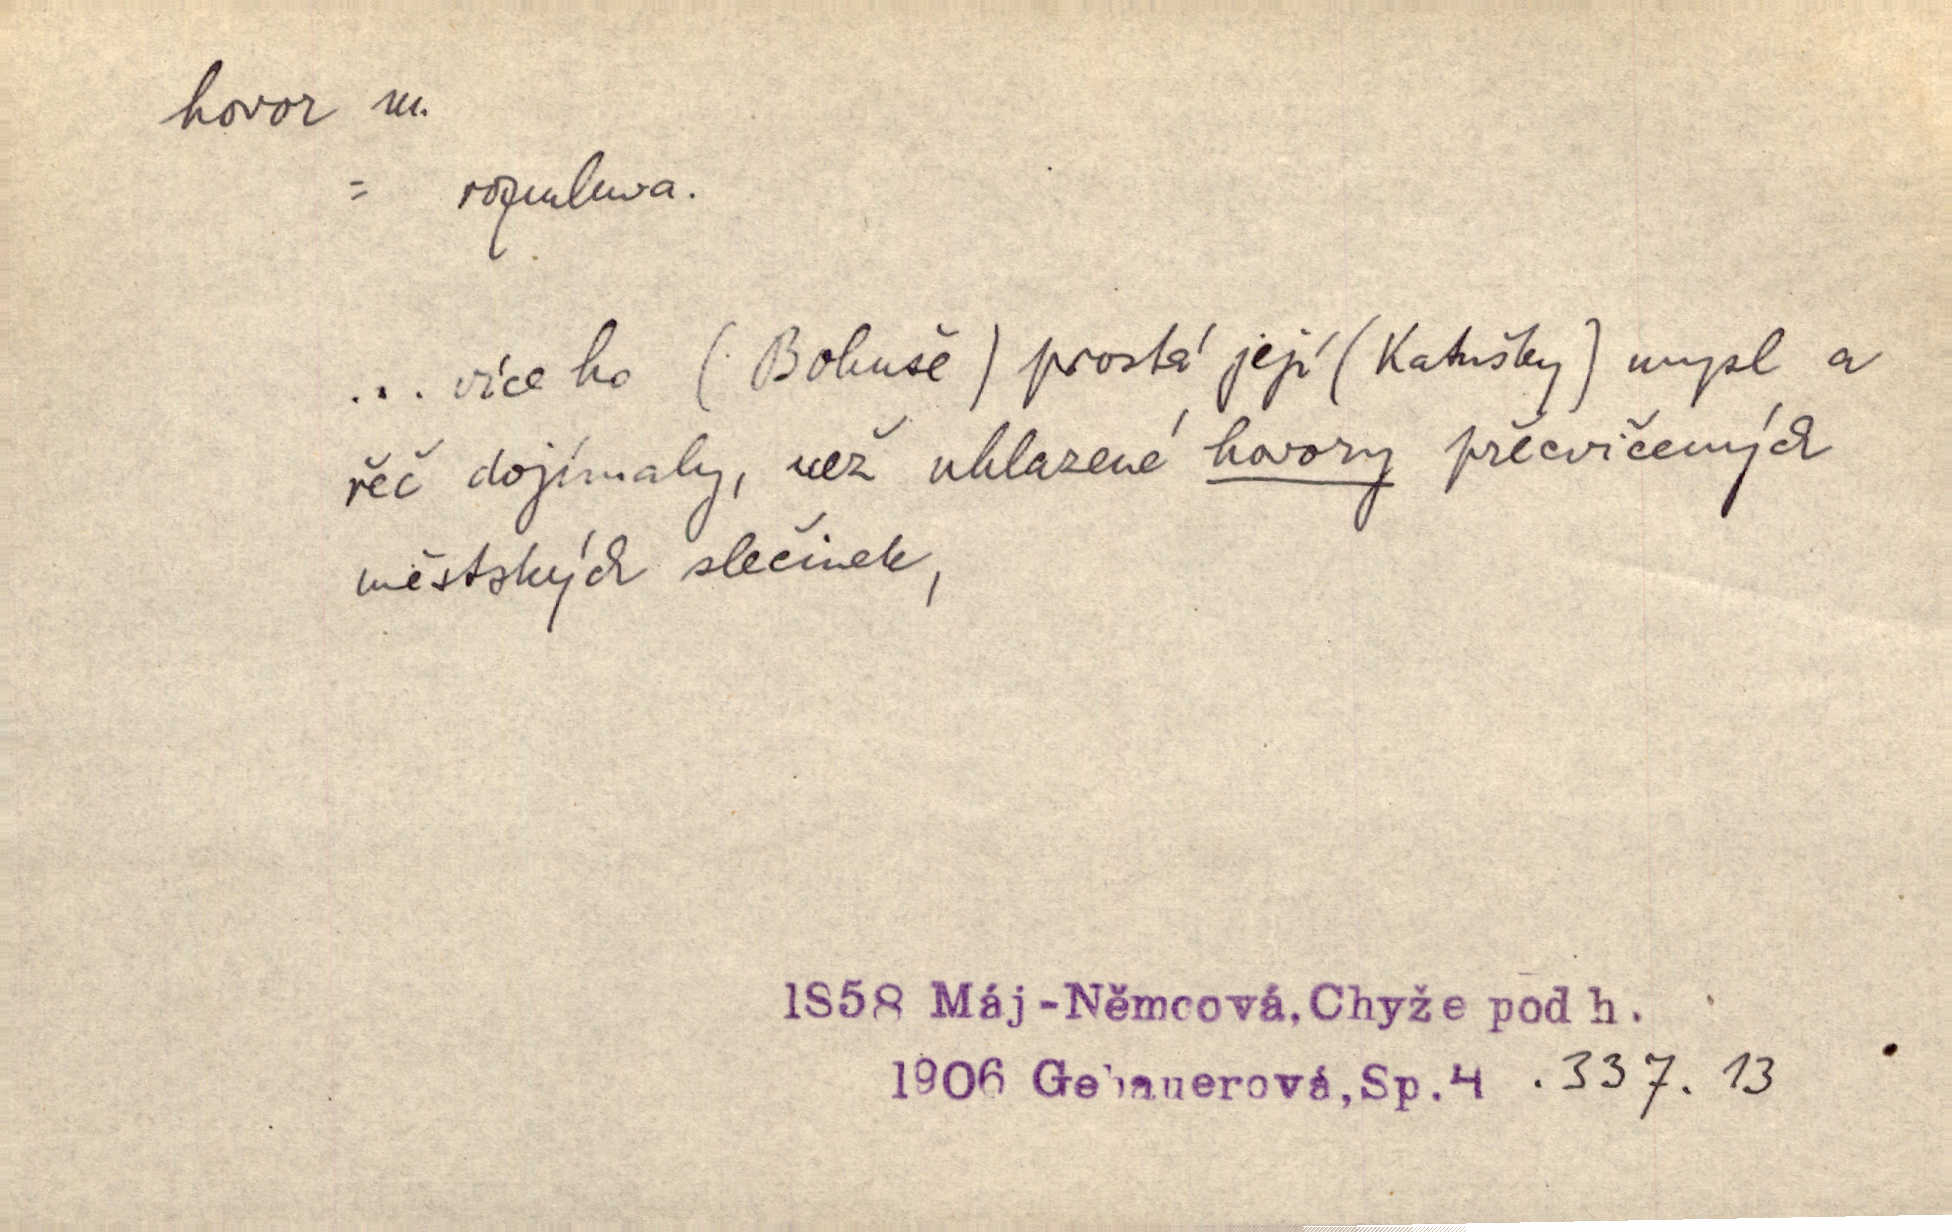 hovor m.
= rozmluva.
... více ho (Bohuše) prostá její (Katušky) mysl a
řeč dojímaly, než uhlazené hovory přecvičených
městských slečinek,
1858 Máj-Němcová, Chyže pod h.
1906 Gebauerová, Sp. 4 . 337. 13